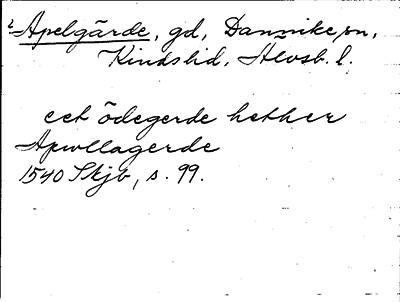 2 Apelgärde, gd, Dannike sn,
Kinds hd, Älvsb. l.
eet ödegerde hether
Apwllagerde
1540 Skjb, s. 99.